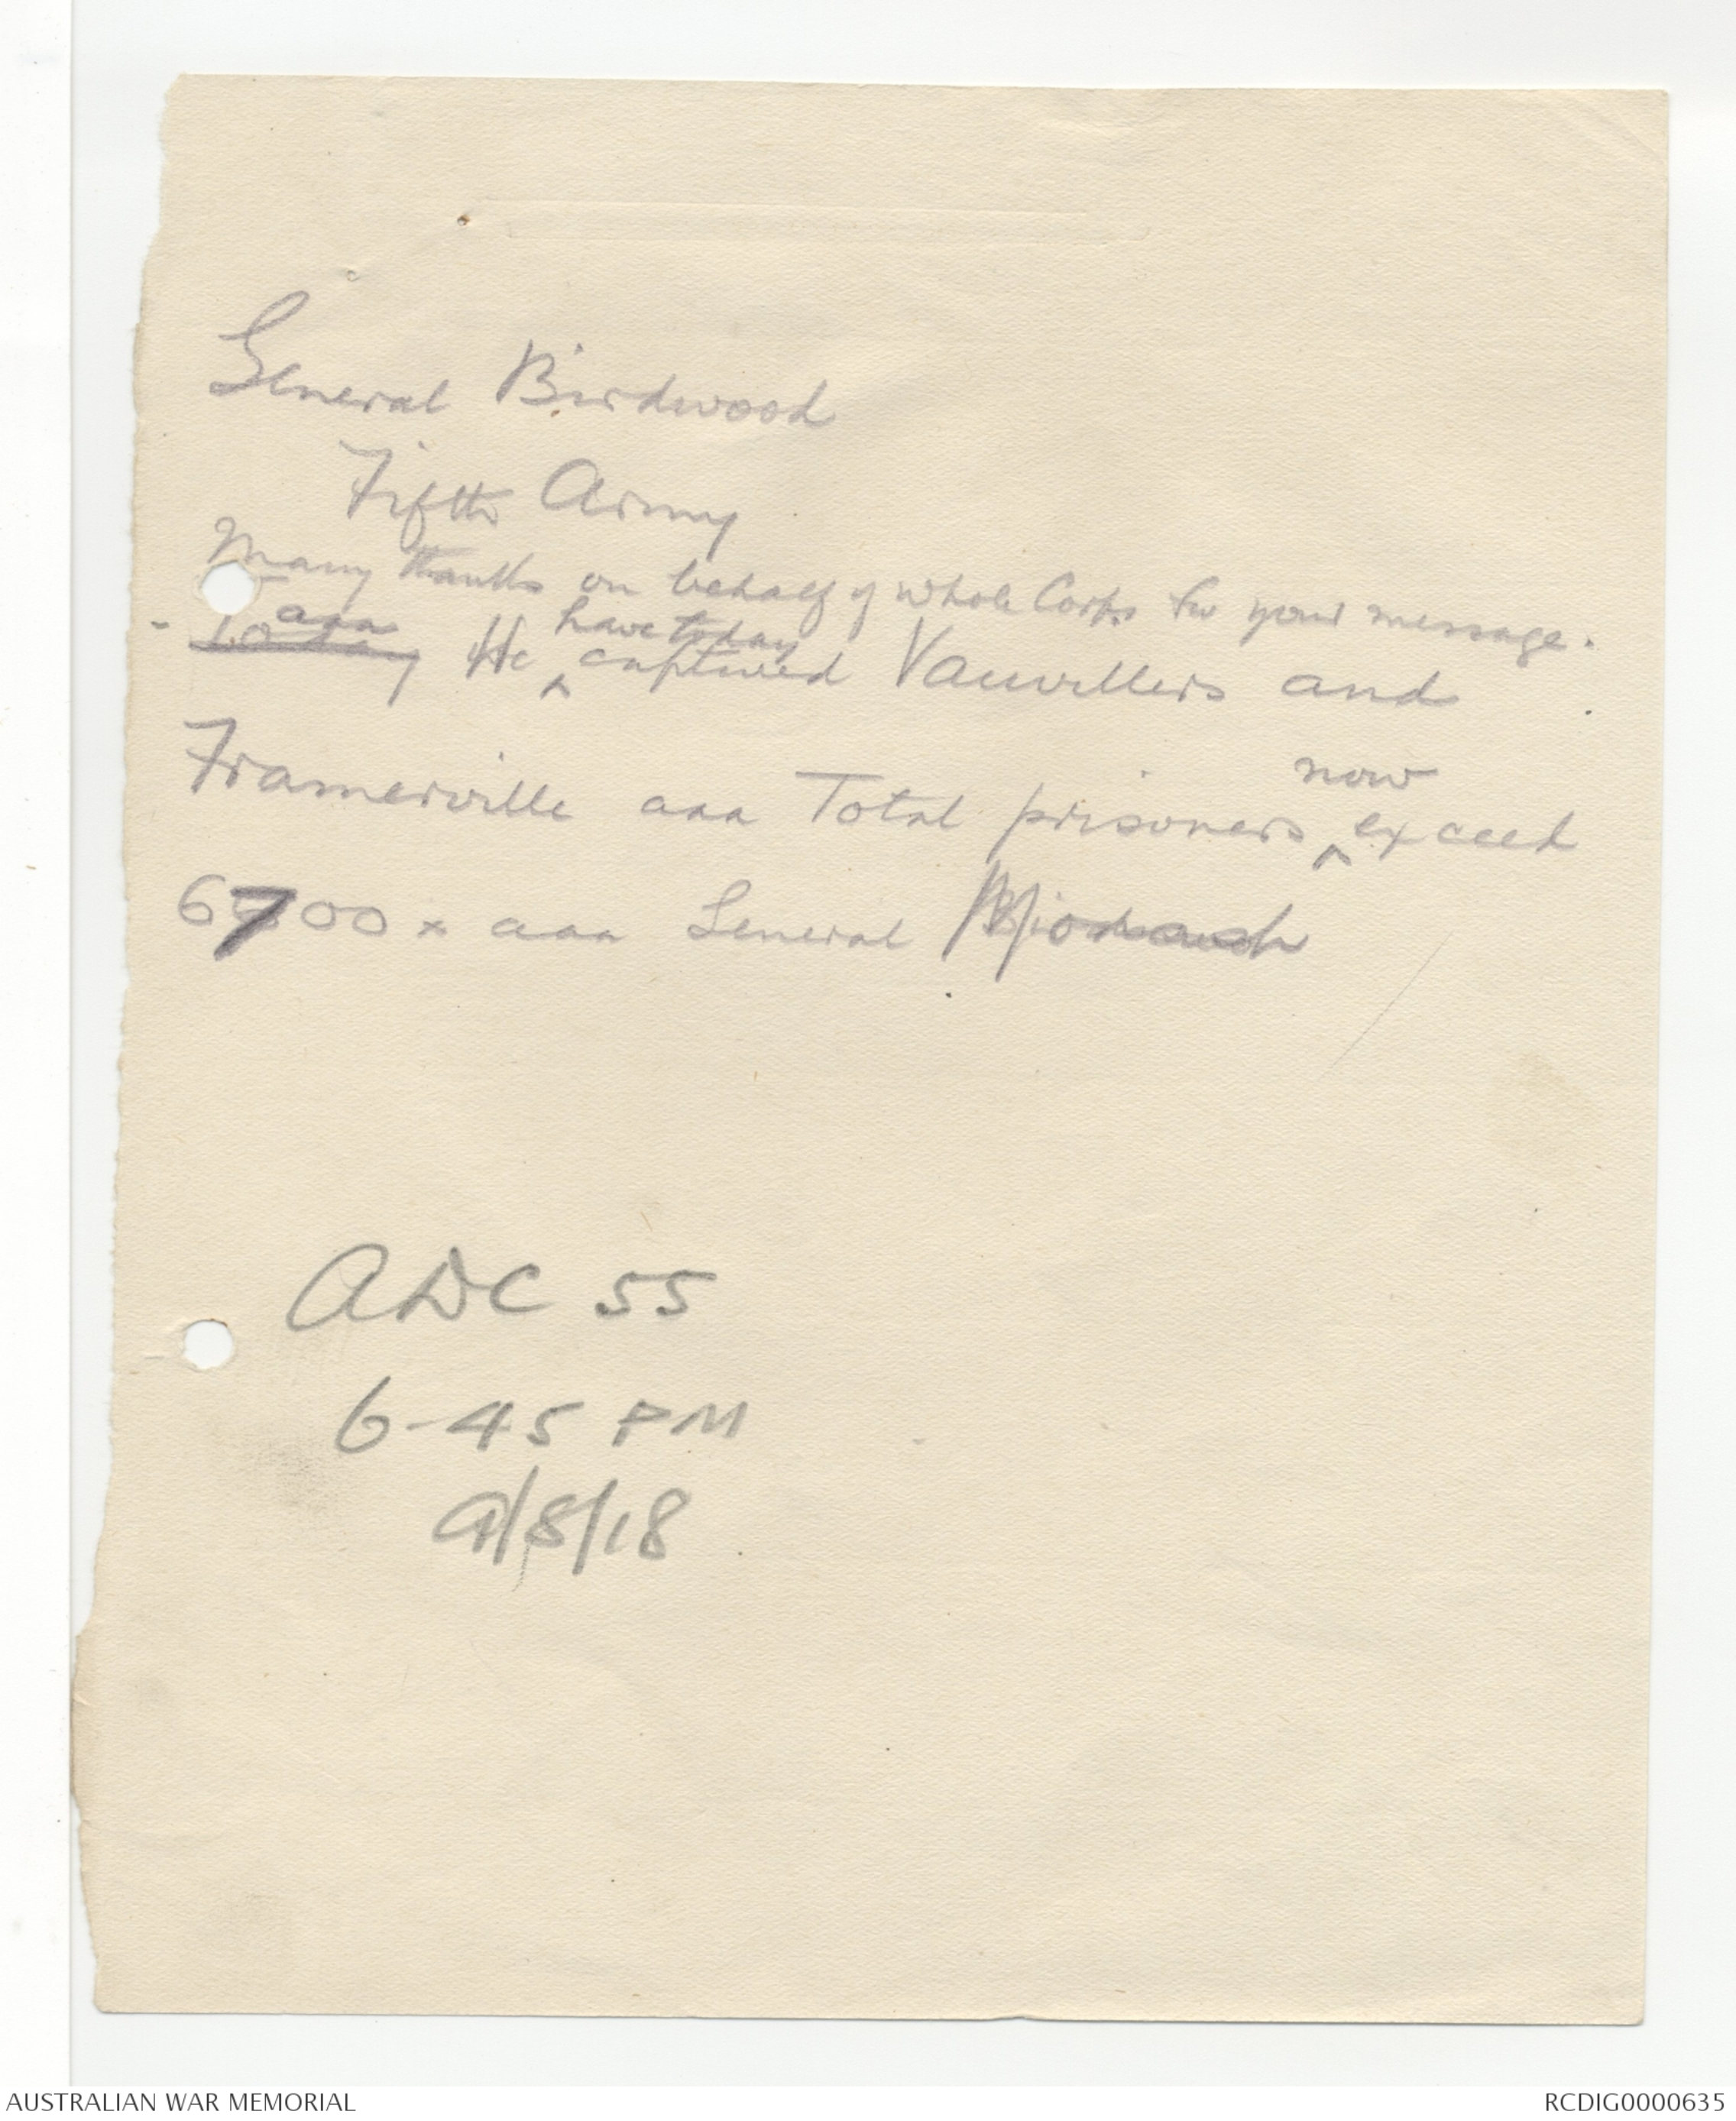 General Birdwood
Fifth Army
Many thanks on behalf of whole Corps for your message.
aaa have today
Today We ^ captured Vauvillers and
now
Framerville aaa Total prisoners ^ exceed
6700 x aaa General
ADC 55
6-45 PM
9/8/18
AUSTRALIAN WAR MEMORIAL
RCDIG0000635